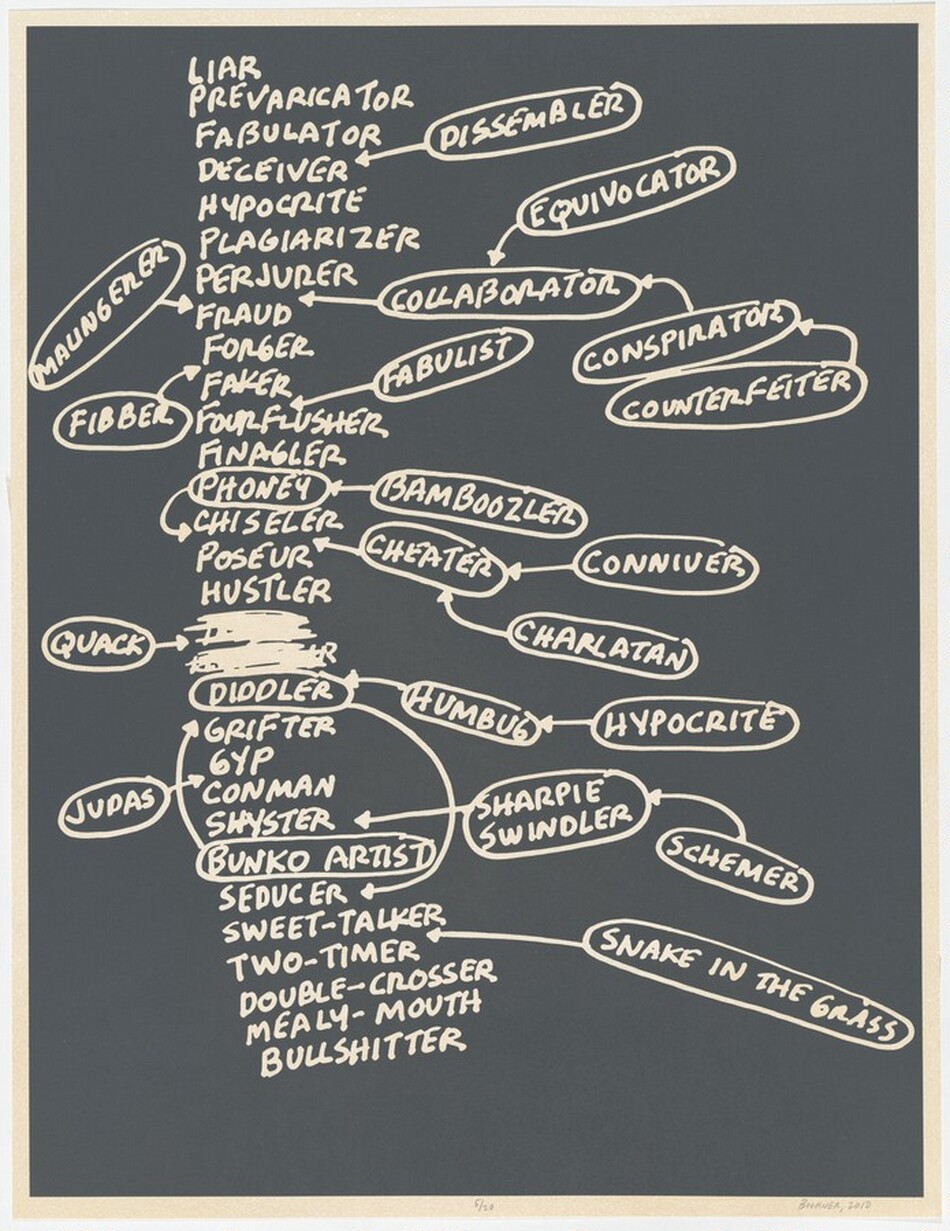 LIAR
PREVARICATOR
FABULATOR
DISSEMBLER
DECEIVER
HYPOCRITE
EQUIVOCATOR
PLAGIARIZER
PERJURER
COLLABORATOR
MALINGERER
FRAUD
CONSPIRATOR
FORGER
FABULIST
FAKER
COUNTERFEITER
FIBBER
FOURFLUSHER
FINAGLER
PHONEY
BAMBOOZLER
CHISELER
POSEUR
CHEATER
CONNIVER
HUSTLER
QUACK
CHARLATAN
DIDDLER
HUMBUG
HYPOCRITE
GRIFTER
GYP
CONMAN
JUDAS
SHYSTER
SHARPIE
SWINDLER
BUNKO ARTIST
SCHEMER
SEDUCER
SWEET-TALKER
TWO-TIMER
SNAKE IN THE GRASS
DOUBLE-CROSSER
MEALY-MOUTH
BULLSHITTER
5/20
BOCHNER, 2010